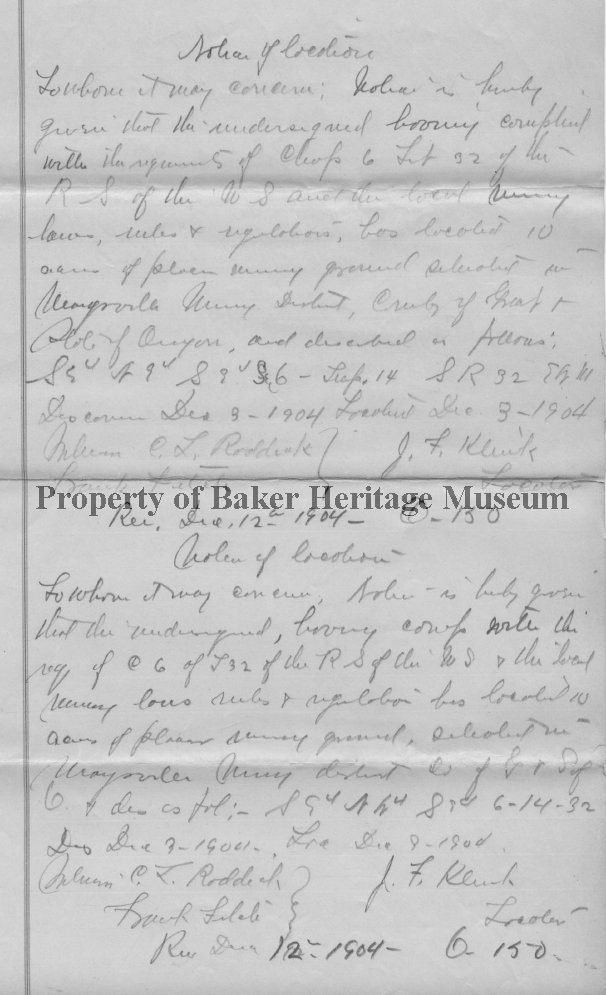 Notice of location
To whom it may concern; Notice is hereby
given that the undersigned having complied
with the requirements of Chap 6 Tit 32 of the
R S of the U S and the local mining
laws, rules & regulations, has located 10
acres of placer mining ground situated in
Marysville Mining District, County of Grant &
State of Oregon, and described as follows;
6 - Twp. 14 S R 32 E W M
Discovered Dec 3-1904 Located Dec 3-1904
C. L. Roddick } J. F. Klink
Frank Locator
Property of Baker Heritage Museum
Rec. Dec. 12th 1904 - - 150
Notice of location
To whom it may concern, Notice is hereby given
that the undersigned, having comp with the
req of C 6 of T 32 of the R S of the U S & the local
mining laws rules & regulations has located 10
acres of placer mining ground, situated in
Marysville Mining district Co of G &
O. & des as fol;- 6-14-32
Dis Dec 3-1904. Loc Dec 3-1904.
C. L. Roddick } J. F. Klink
Frank Locator
Rec Dec 12-1904- 150.